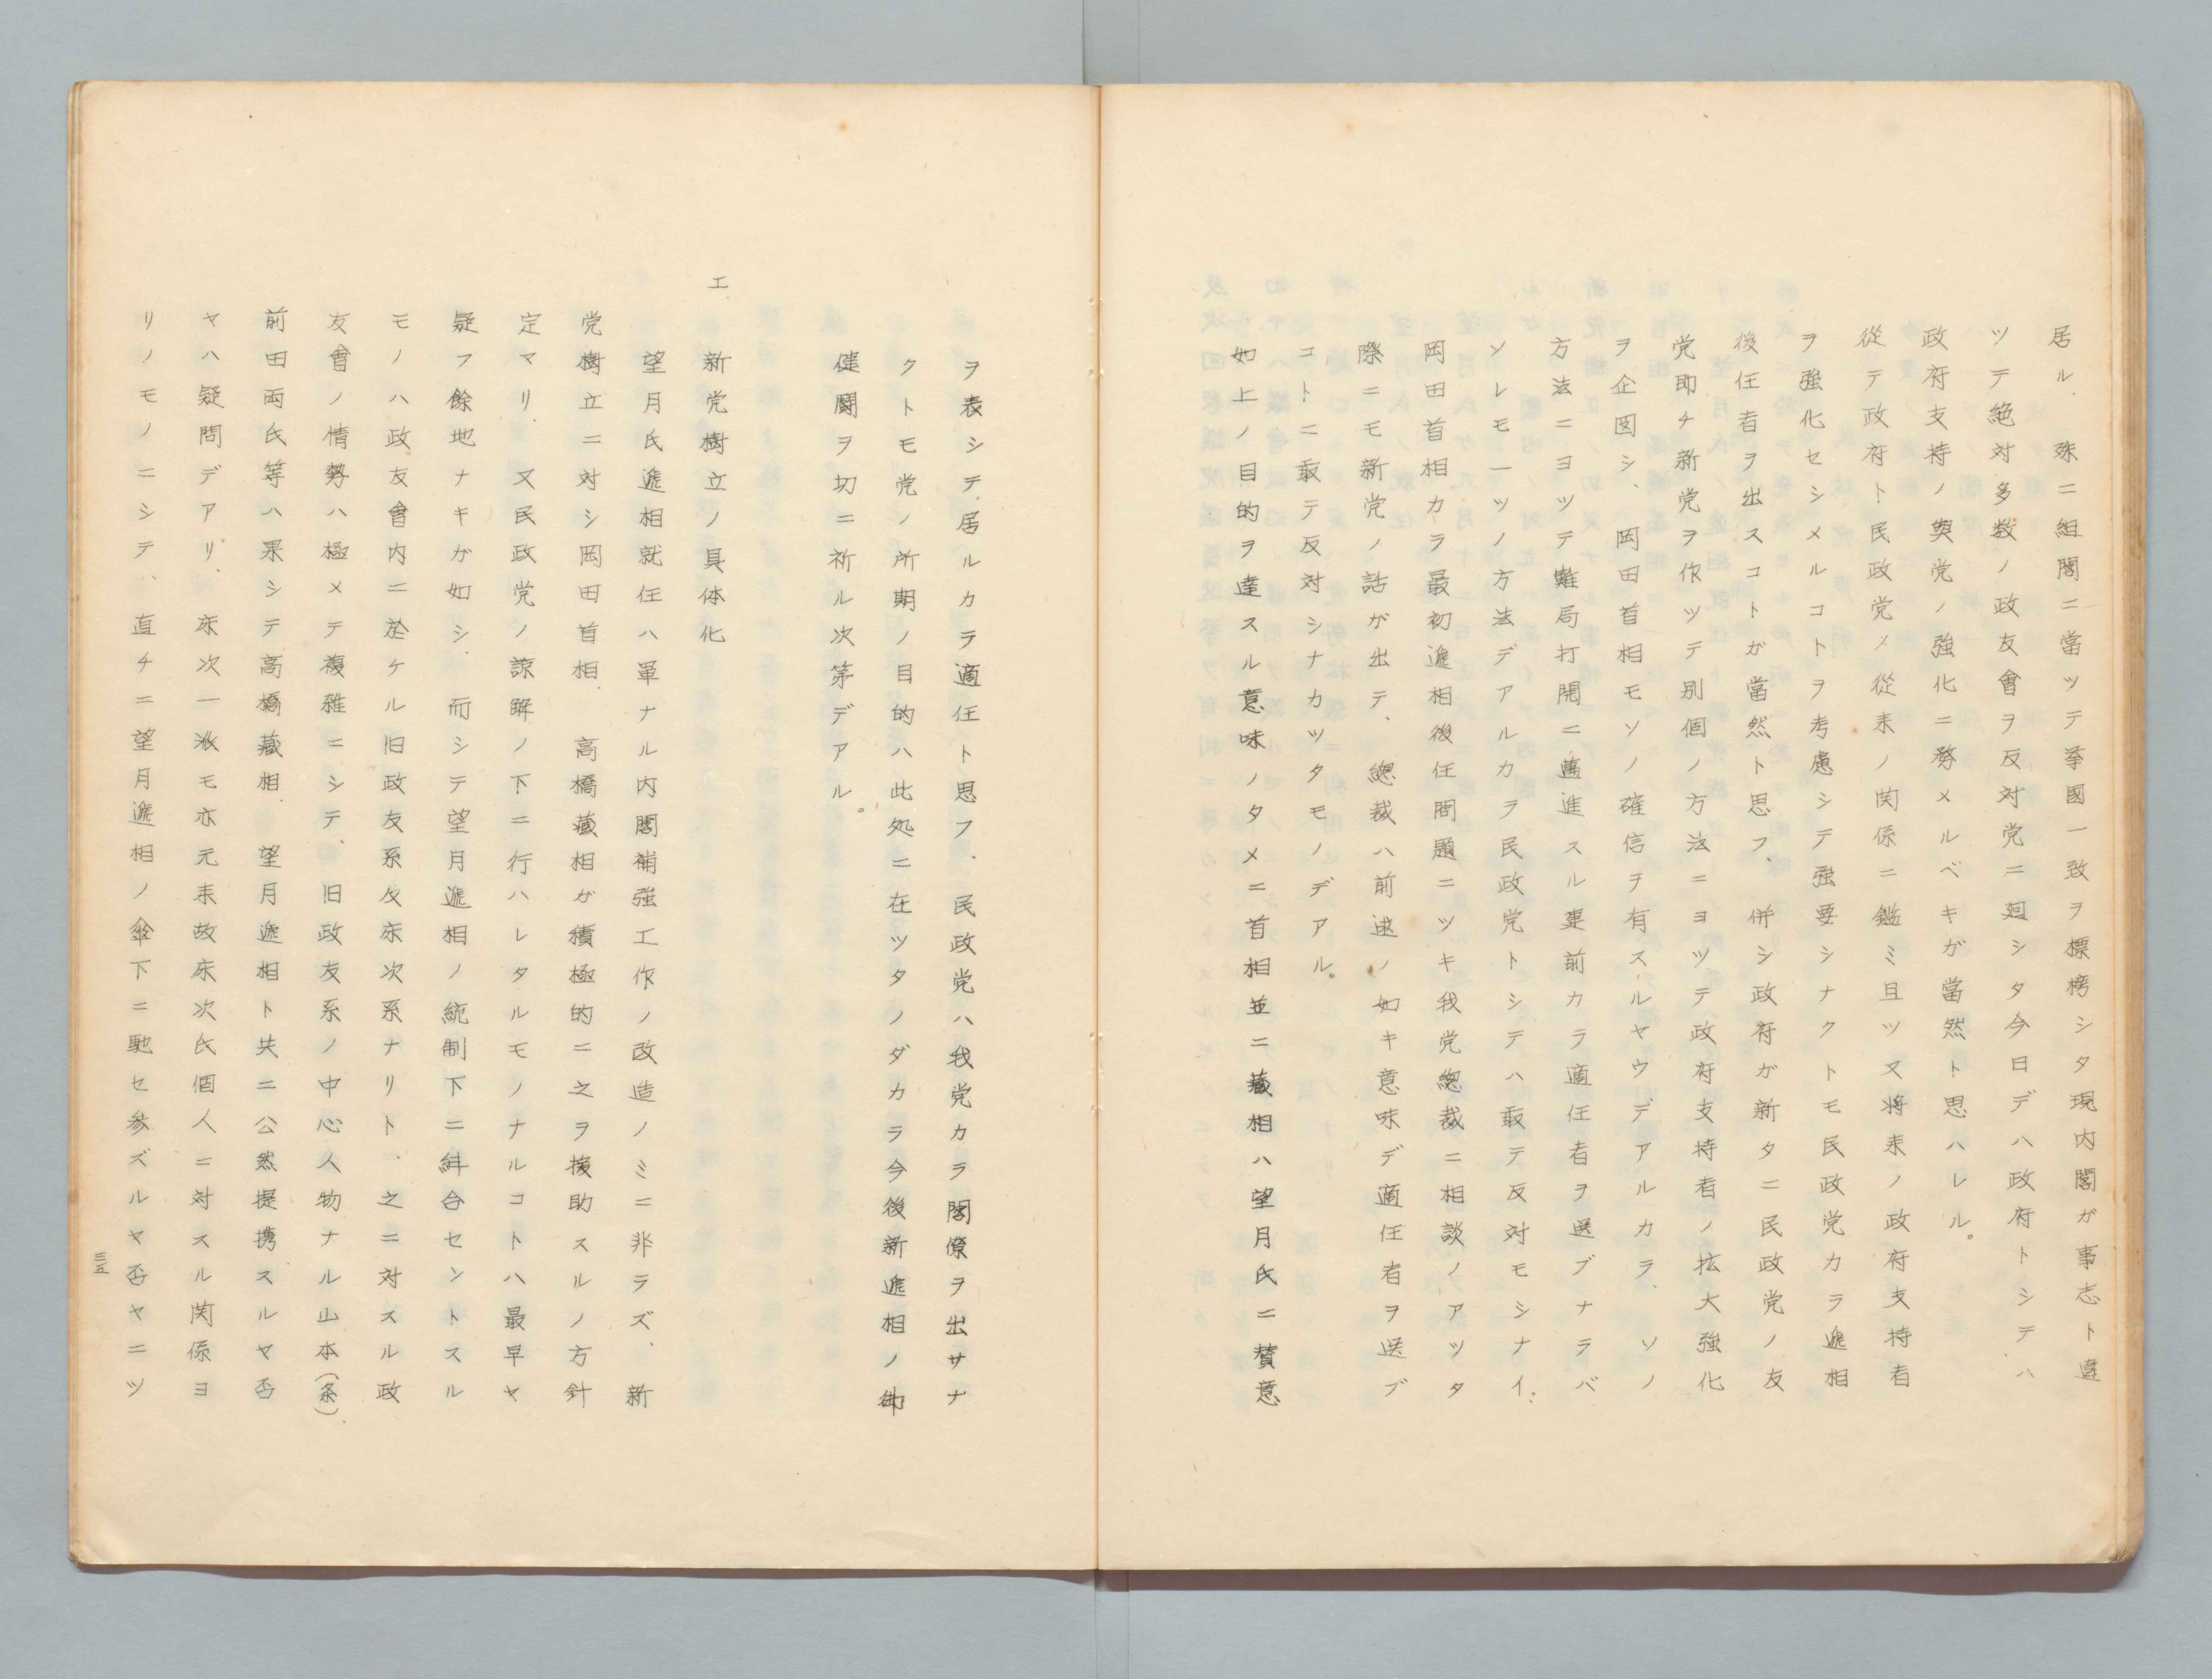 居ル、殊ニ組閣ニ當ツテ挙國一致ヲ標榜シタ現内閣が事志ト違
ツテ絶対多数ノ政友會ヲ反対党ニ廻シタ今日デハ政府トシテハ
政府支持ノ與党ノ強化ニ務メルベキが當然ト思ハレル。
従テ政府ト民政党ノ従来ノ関係ニ鑑ミ且ツ又将来ノ政府支持者
ヲ強化セシメルコトヲ考慮シテ強要シナクトモ民政党カラ逓相
後任者ヲ出スコトが當然ト思フ、併シ政府が新タニ民政党ノ友
党即チ新党ヲ作ツテ別個ノ方法ニヨツテ政府支持者ノ拡大強化
ヲ企図シ、岡田首相モソノ確信ヲ有スルヤウデアルカラ、ソノ
方法ニヨツテ難局打開ニ邁進スル建前カラ適任者ヲ選ブナラバ
ソレモ一ツノ方法デアルカラ民政党トシテハ敢テ反対モシナイ、
岡田首相カラ最初逓相後任問題ニツキ我党総裁ニ相談ノアツタ
際ニモ新党ノ話が出テ、總裁ハ前述ノ如キ意味デ適任者ヲ送ブ
コトニ敢テ反対シナカツタモノデアル。
如上ノ目的ヲ達スル意味ノタメニ首相並ニ藏相ハ望月氏ニ賛意
ヲ表シテ居ルカラ適任ト思フ、民政党ハ我党カラ閣僚ヲ出サナ
クトモ党ノ所期ノ目的ハ此処ニ在ツタノダカラ今後新逓相ノ御
健闘ヲ切ニ祈ル次第デアル。
エ 新党樹立ノ具体化
望月氏逓相就任ハ單ナル内閣補強工作ノ改造ノミニ非ラズ、新
党樹立ニ対シ岡田首相、高橋藏相が積極的ニ之ヲ援助スルノ方針
定マリ、又民政党ノ諒解ノ下ニ行ハレタルモノナルコトハ最早ヤ
疑フ餘地ナキが如シ、而シテ望月逓相ノ統制下ニ糾合セントスル
モノハ政友會内ニ於ケル旧政友系及床次系ナリト、之ニ対スル政
友會ノ情勢ハ極メテ複雜ニシテ、旧政友系ノ中心人物ナル山本(条)、
前田両氏等ハ果シテ高橋藏相、望月逓相ト共ニ公然提携スルヤ否
ヤハ疑問デアリ、床次一派モ亦元来故床次氏個人ニ対スル関係ヨ
リノモノニシテ、直チニ望月逓相ノ傘下ニ馳セ参ズルヤ否ヤニツ
三五